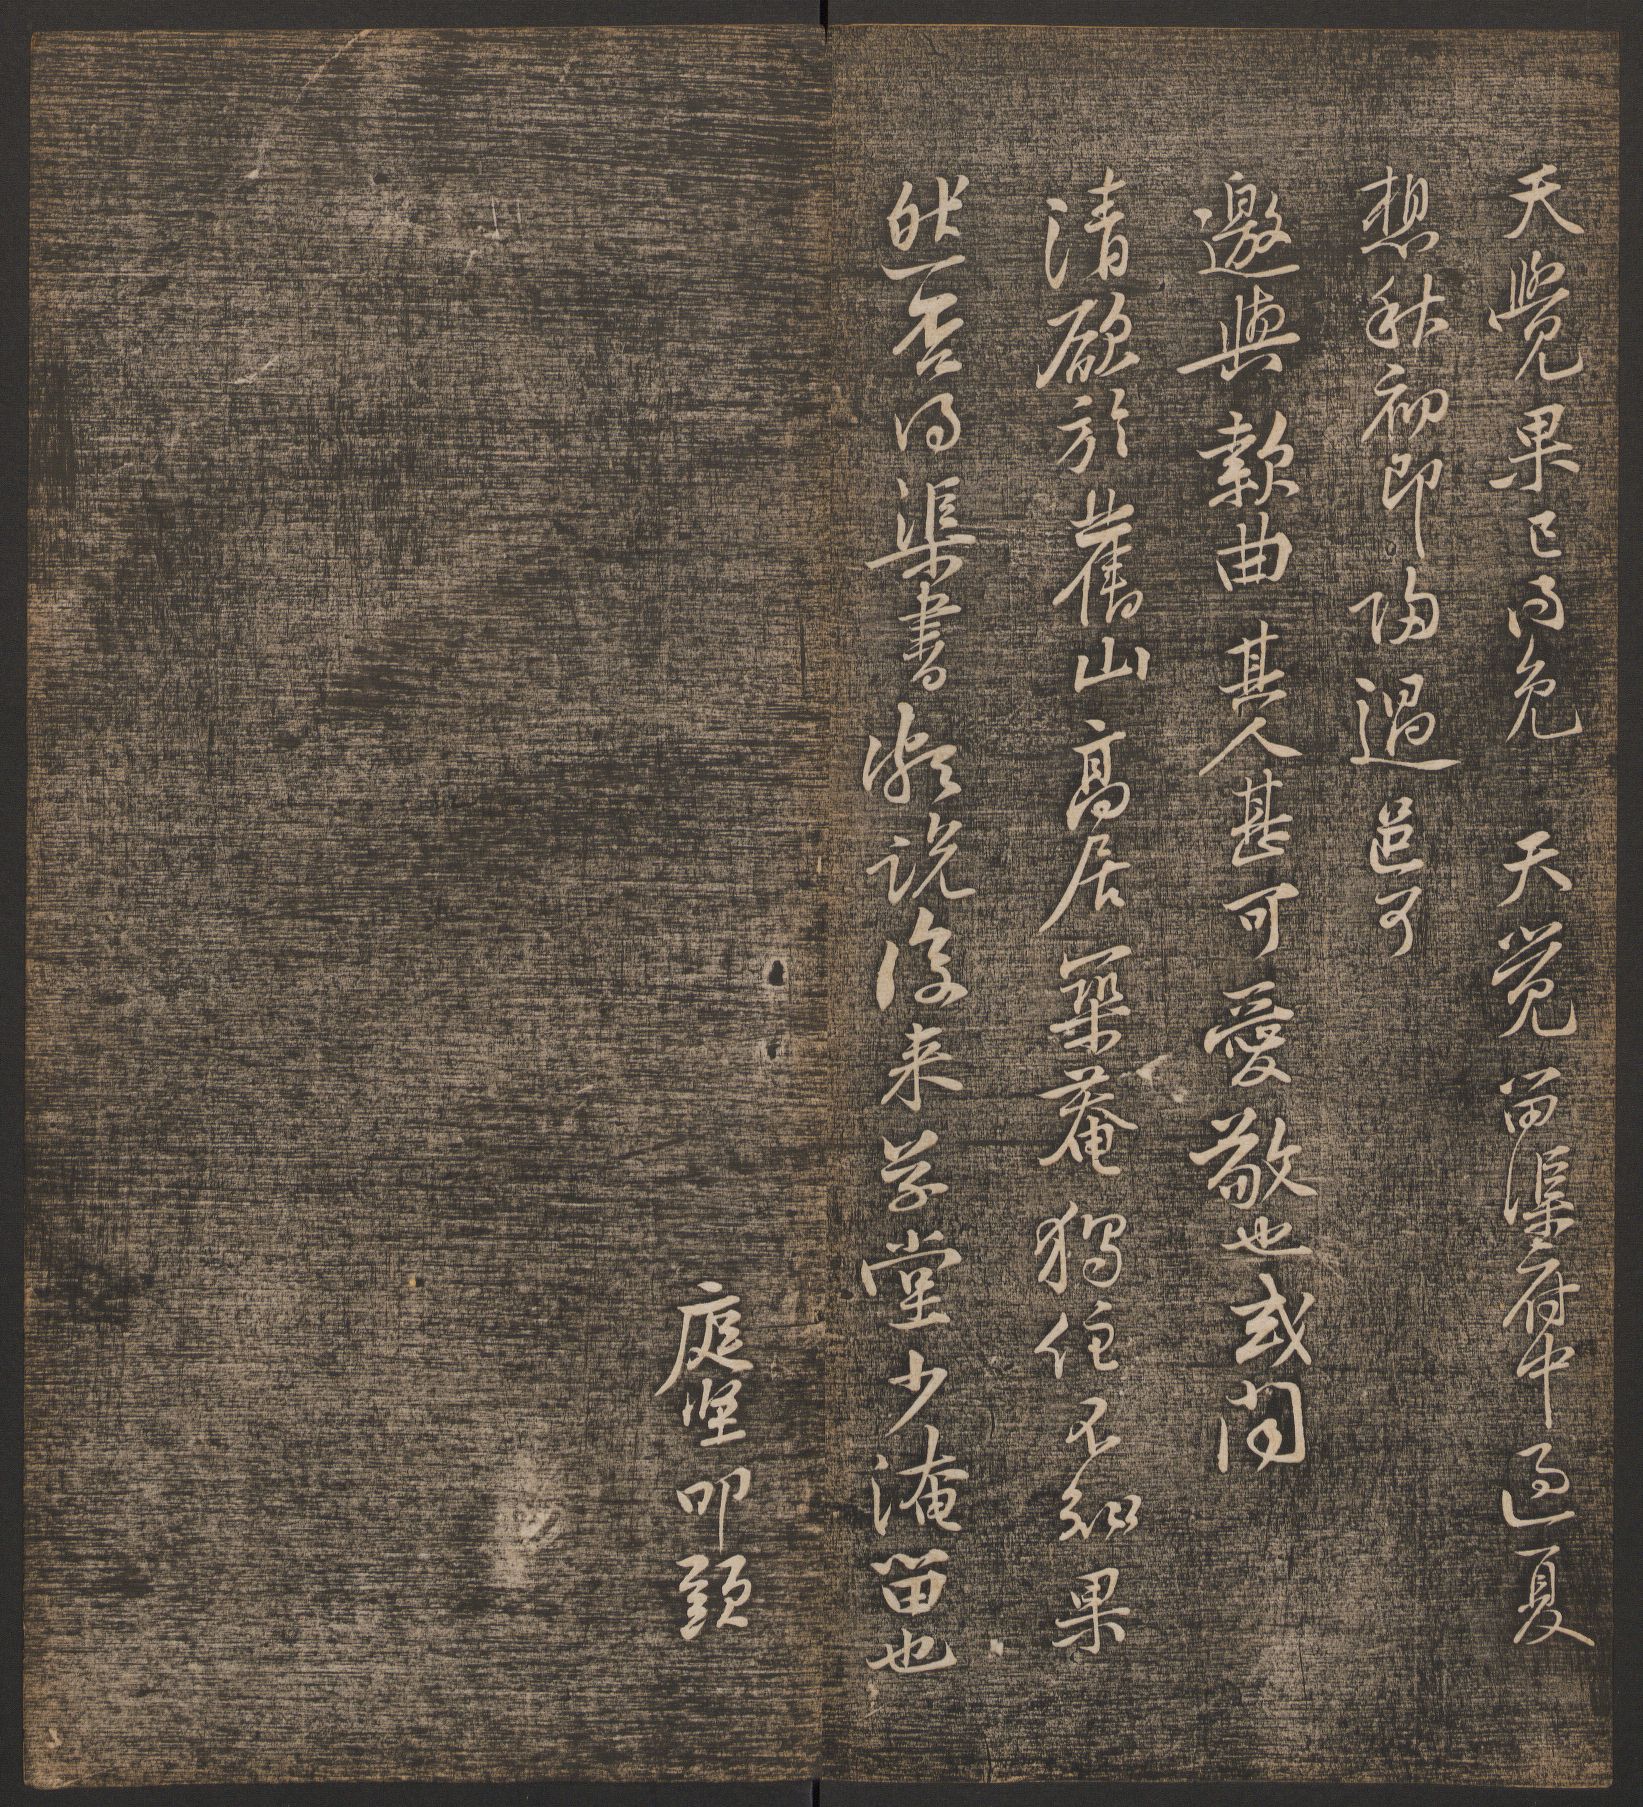 天覺果已得免　天覺留渠府中過夏
想秋初即歸過邑可
邀與款曲其人甚可愛敬也或聞
清欲於舊山高居築菴獨住不知果
然否得渠書頗說後來草堂少淹留也
庭堅叩頭